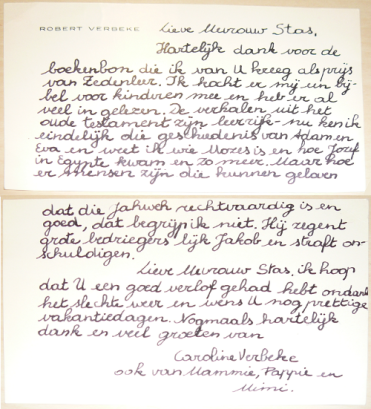 ROBERT VERBEKE
Lieve Mevrouw Stas,
Hartelijk dank voor de
boekenbon die ik van U kreeg als prijs
van Zedenleer. Ik kocht er mij een bij-
bel voor kinderen mee en heb er al
veel in gelezen. De verhalen uit het
oude testament zijn leerrijk - nu ken ik
eindelijk die geschiedenis van Adam en
Eva en weet ik wie Mozes is en hoe Jozef
in Egypte kwam en zo meer. Maar hoe
er mensen zijn die kunnen geloven
dat die Jahweh rechtvaardig is en
goed, dat begrijp ik niet. Hij zegent
grote bedriegers lijk Jakob en straft on-
schuldigen.
Lieve Mevrouw Stas, ik hoop
dat U een goed verlof gehad hebt ondanks
het slechte weer en wens U nog prettige
vakantiedagen. Nogmaals hartelijk
dank en veel groeten van
Caroline Verbeke
ook van Mammie, Pappie en
Mimi.